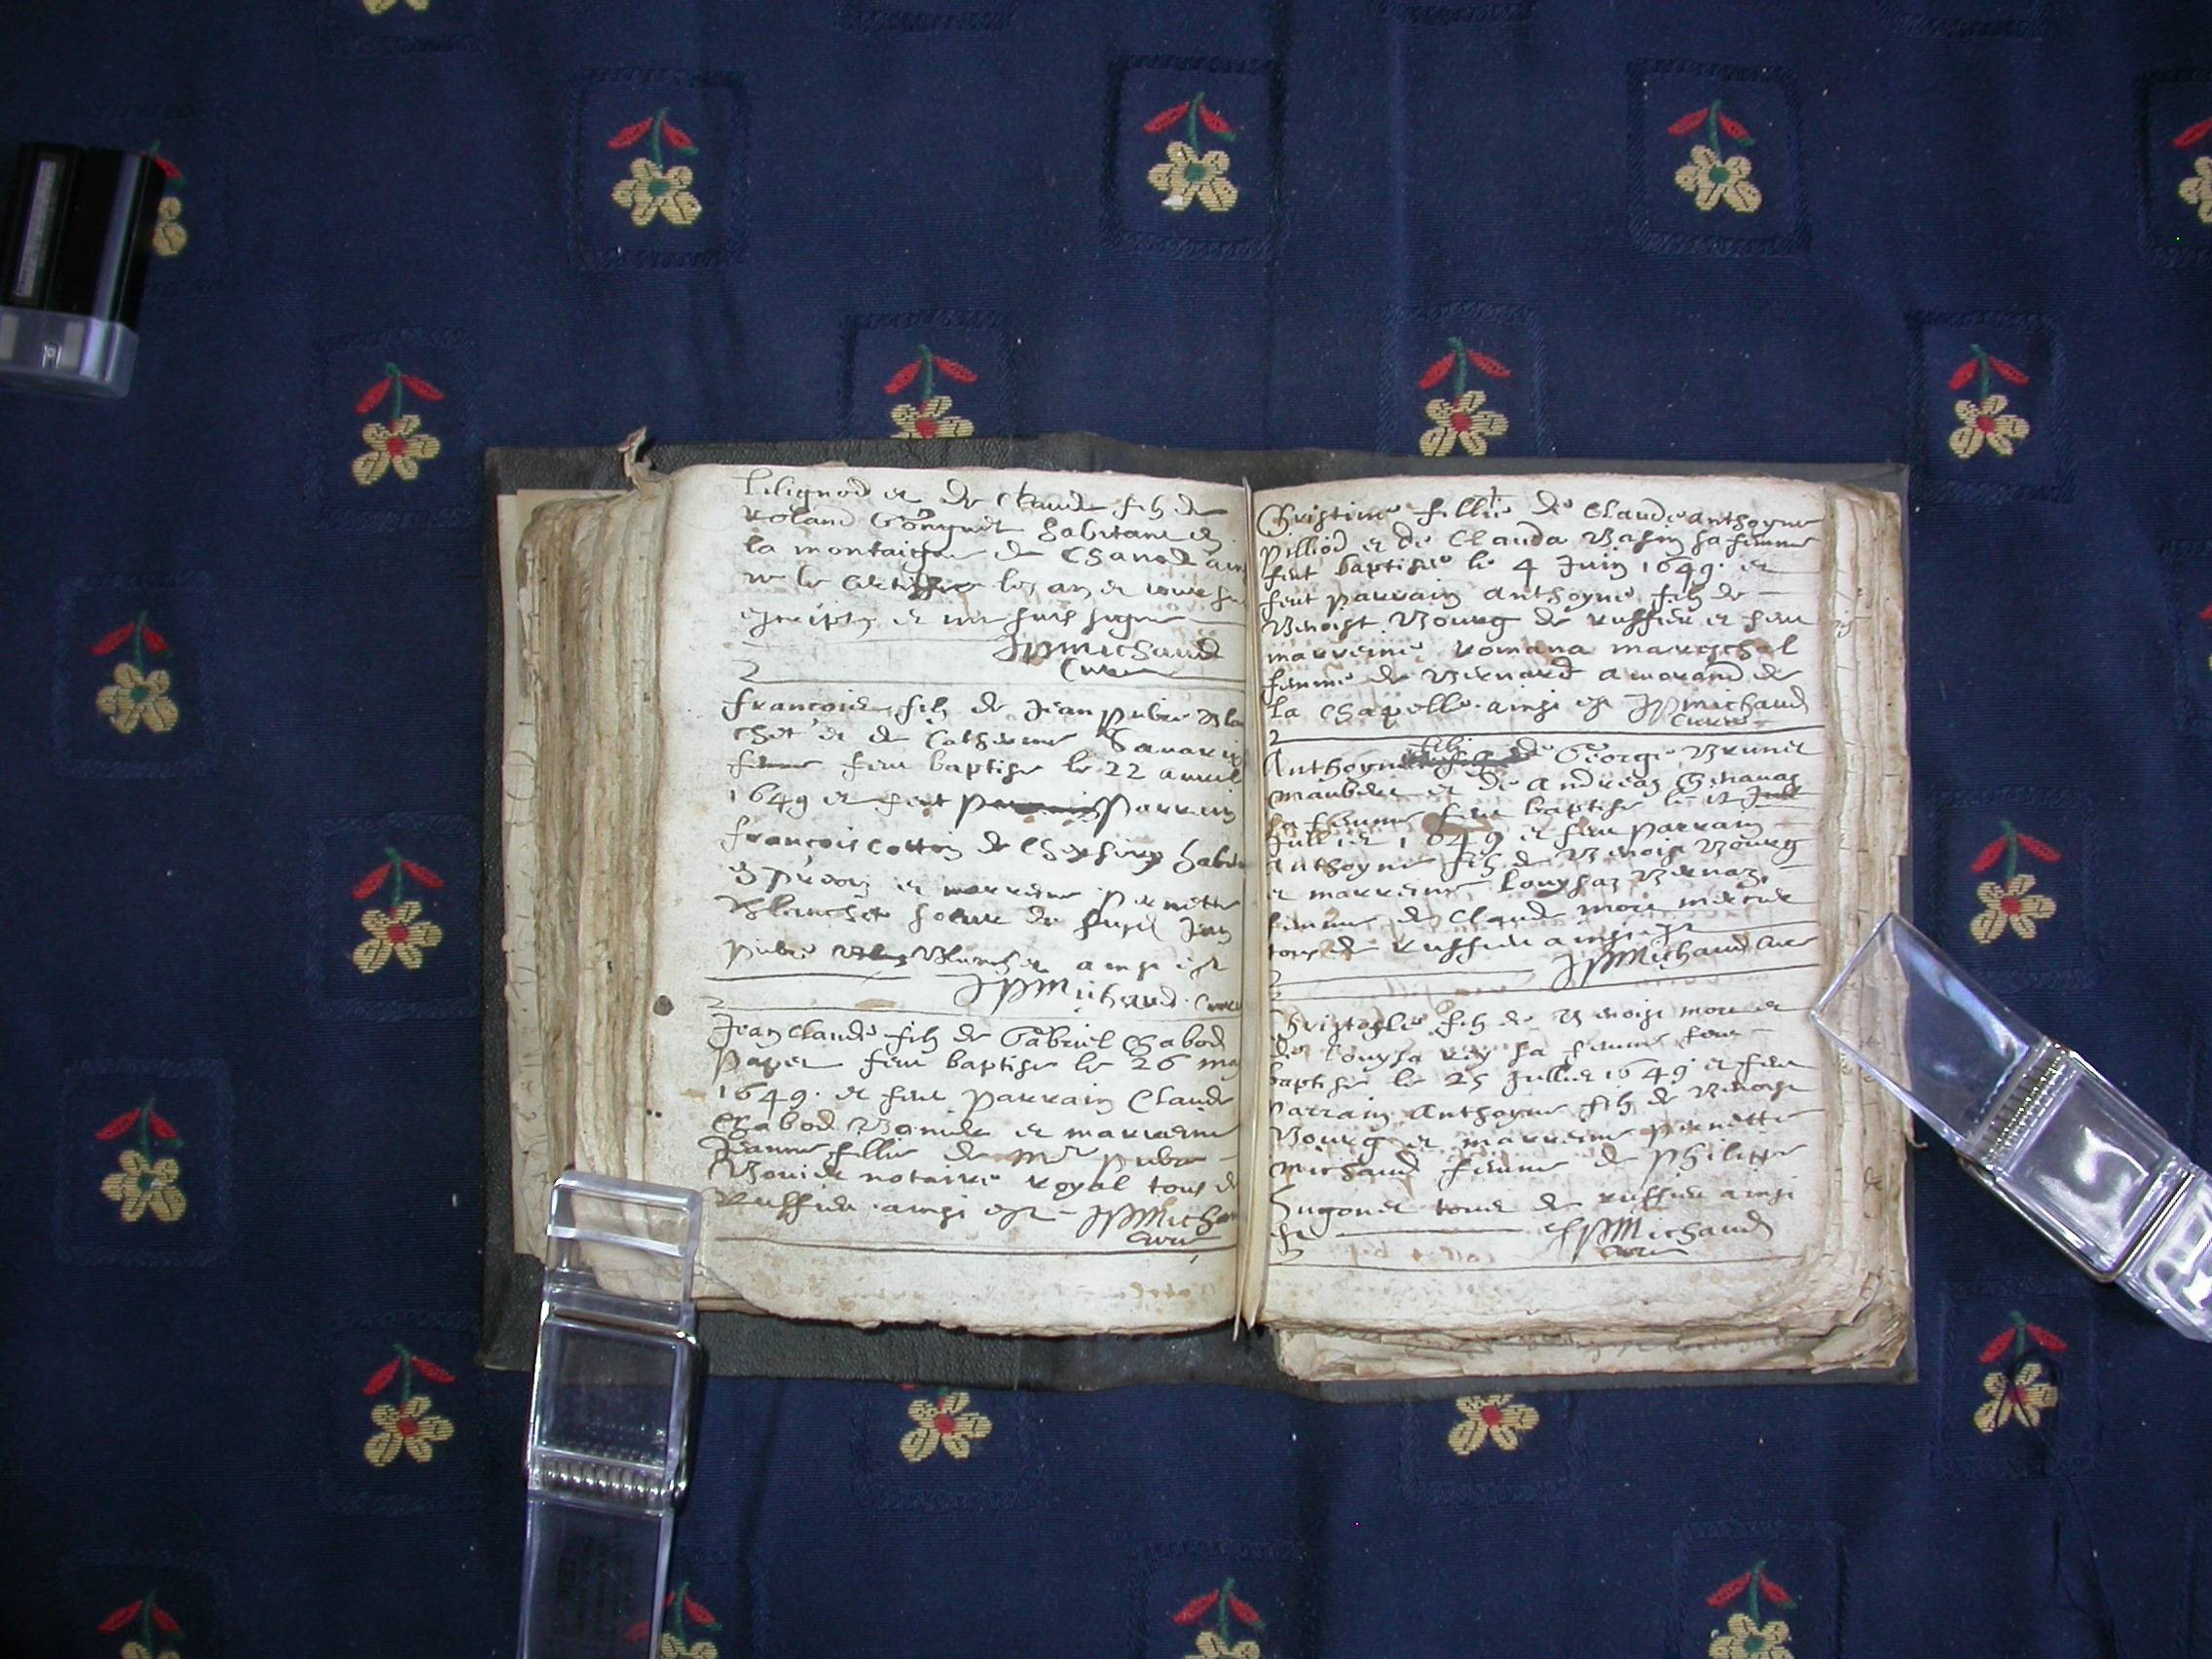 Lilignod et de Claude fils de
Roland Gonguet habitant en
la montaigne de Chanod ain
escripts et me suis signe
JPMichaud
Cure
francois fils de Jean pierre Bla
chet et de Catherine Savarin
femme feut baptise le 22 avril
1649 et feut parrain
francois cottin de habit
en et marreine Pernette
Blanchet soeur du susd Jean
pierre Blanchet ainsi est
JPMichaud Cure
Jean Claude fils de Gabriel Chabod
Papet feut baptise le 26 may
1649. et feut parrain Claude
Chabod et marreine
Jeanne fillie de Mre pierre
Bouide notaire Royal tous de
Ruffieu ainsi est JPMichau
Cure
Christine fillie de Claude anthoyne
pilliod et de Clauda sa femme
feut baptisee le 4 Juin 1649. et
feut parrain anthoyne fils de
Benoist Bourg de Ruffieu et feut
marreine Romana mareschal
femme de Bernard amorand de
la Chapelle. ainsi est JPMichaud
Curé
Anthoyne fils de George Brunet
et de Andreaz
sa femme feut baptise le 12
Julliet 1649 et feut parrain
Anthoyne fils de Benoist Bourg
et marreine Louysaz Bernaz
femme de Claude more
tous de Ruffieu ainsi est
JPMichaud Cure
Christople fils de Benoist more et
de Louysa Rey sa femme feut
baptise le 25 Jullie 1649 et feut
parrain Anthoyne fils de Benoist
Bourg et marreine pernette
michaud femme de philippe
hugonet tous de Ruffieu ainsi
est JPMichaud
Cure